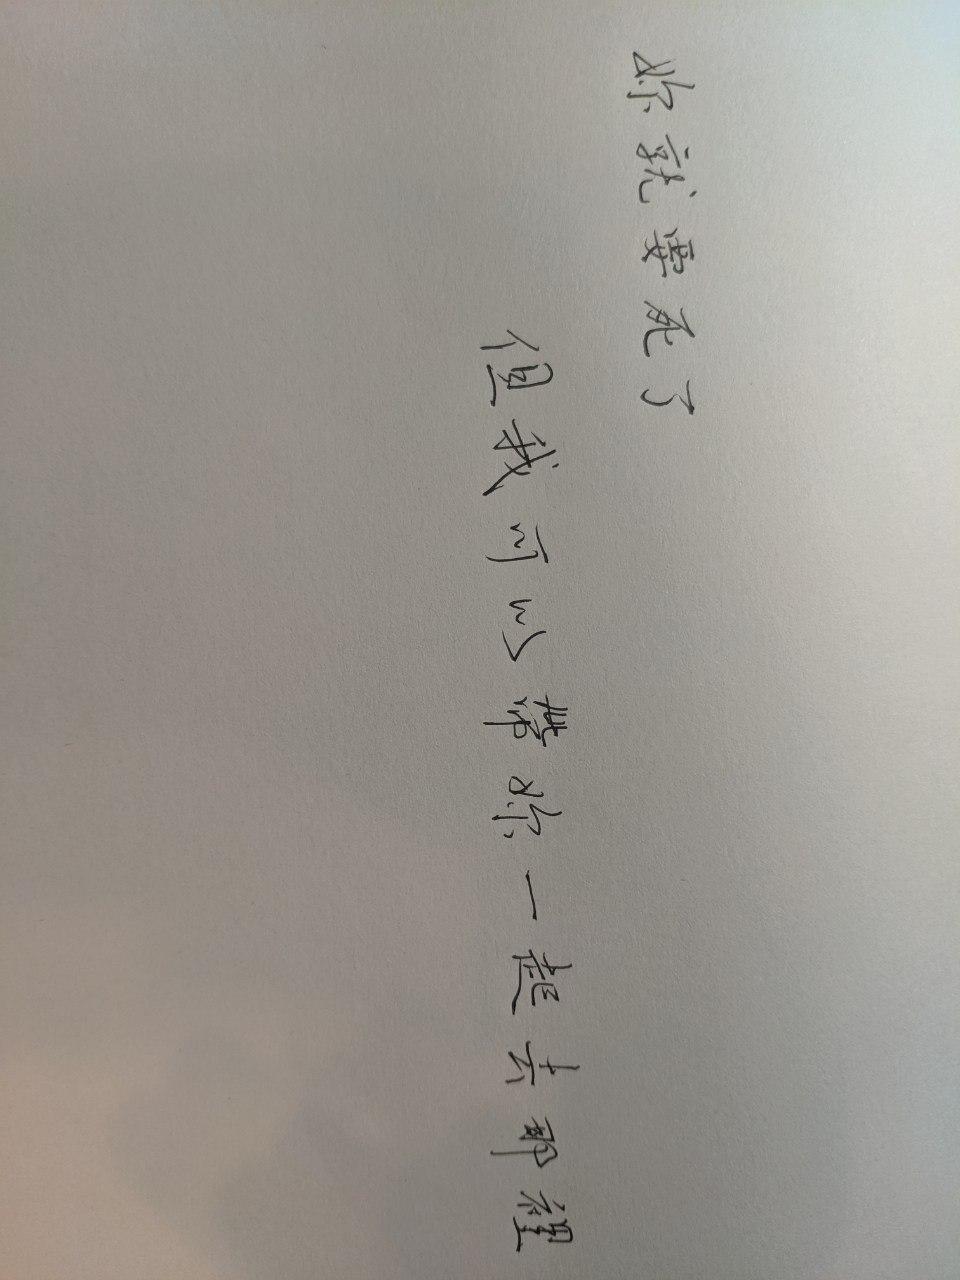 妳就要死了
但我可以帶妳一起去那裡